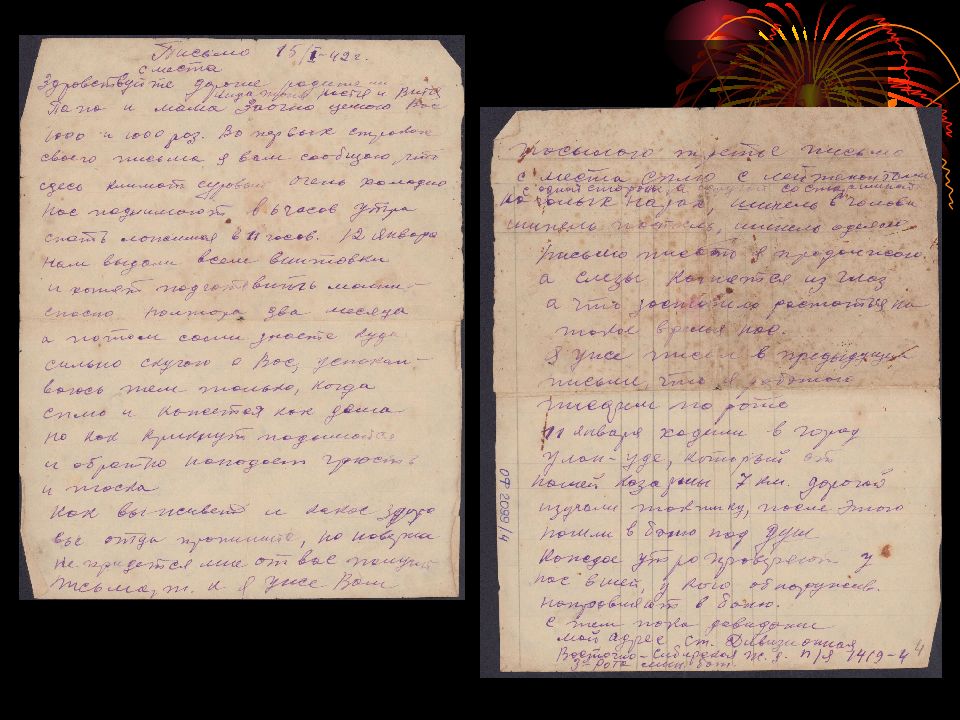 Письмо 15/I-42 г.
с места
Здравствуйте дорогие родители
Лида Женя Костя и Витя
Папа и мама Заочно целую Вас
1000 и 1000 раз. Во первых строках
своего письма я вам сообщаю, что
здесь климат суровый очень холодно
Нас поднимают в 6 часов утра
спать ложимся в 11 часов. 12 января
нам выдали всем винтовки
и хотят подготовить
полтора два месяца
а потом сами знаете куда
сильно скучаю о Вас, успокаи-
ваюсь тем только, когда
сплю и кажется как дома
но как крикнут подымайся
и обратно нападает грусть
и тоска
Как вы живете и какое здоро
вье отца пропишите, но наверно
не придется мне от вас получить
письма, т. к я уже Вам
посылаю третье письмо
с места сплю с лейтенантами
с одной стороны, а с другой со старшиной
на голых нарах, шинель в головы
шинель постель, шинель одеяло
письмо писать я продолжаю
а слезы катятся из глаз
а что заставило расстаться на
такое время нас.
Я уже писал в предыдущем
письме, что я работаю
писарем по роте
11 января ходили в город
улан-уде, который от
нашей казармы 7 км. дорогой
изучали тактику, после этого
пошли в баню под душ
каждое утро проверяют у
нас вшей, у кого обнаружив.
направляют в баню.
с тем пока до свидания
мой адрес ст. Дивизионная
Восточно-Сибирская ж. д. п/я 1419-4
3я рота мин. бат.
ОФ 2099/4
4